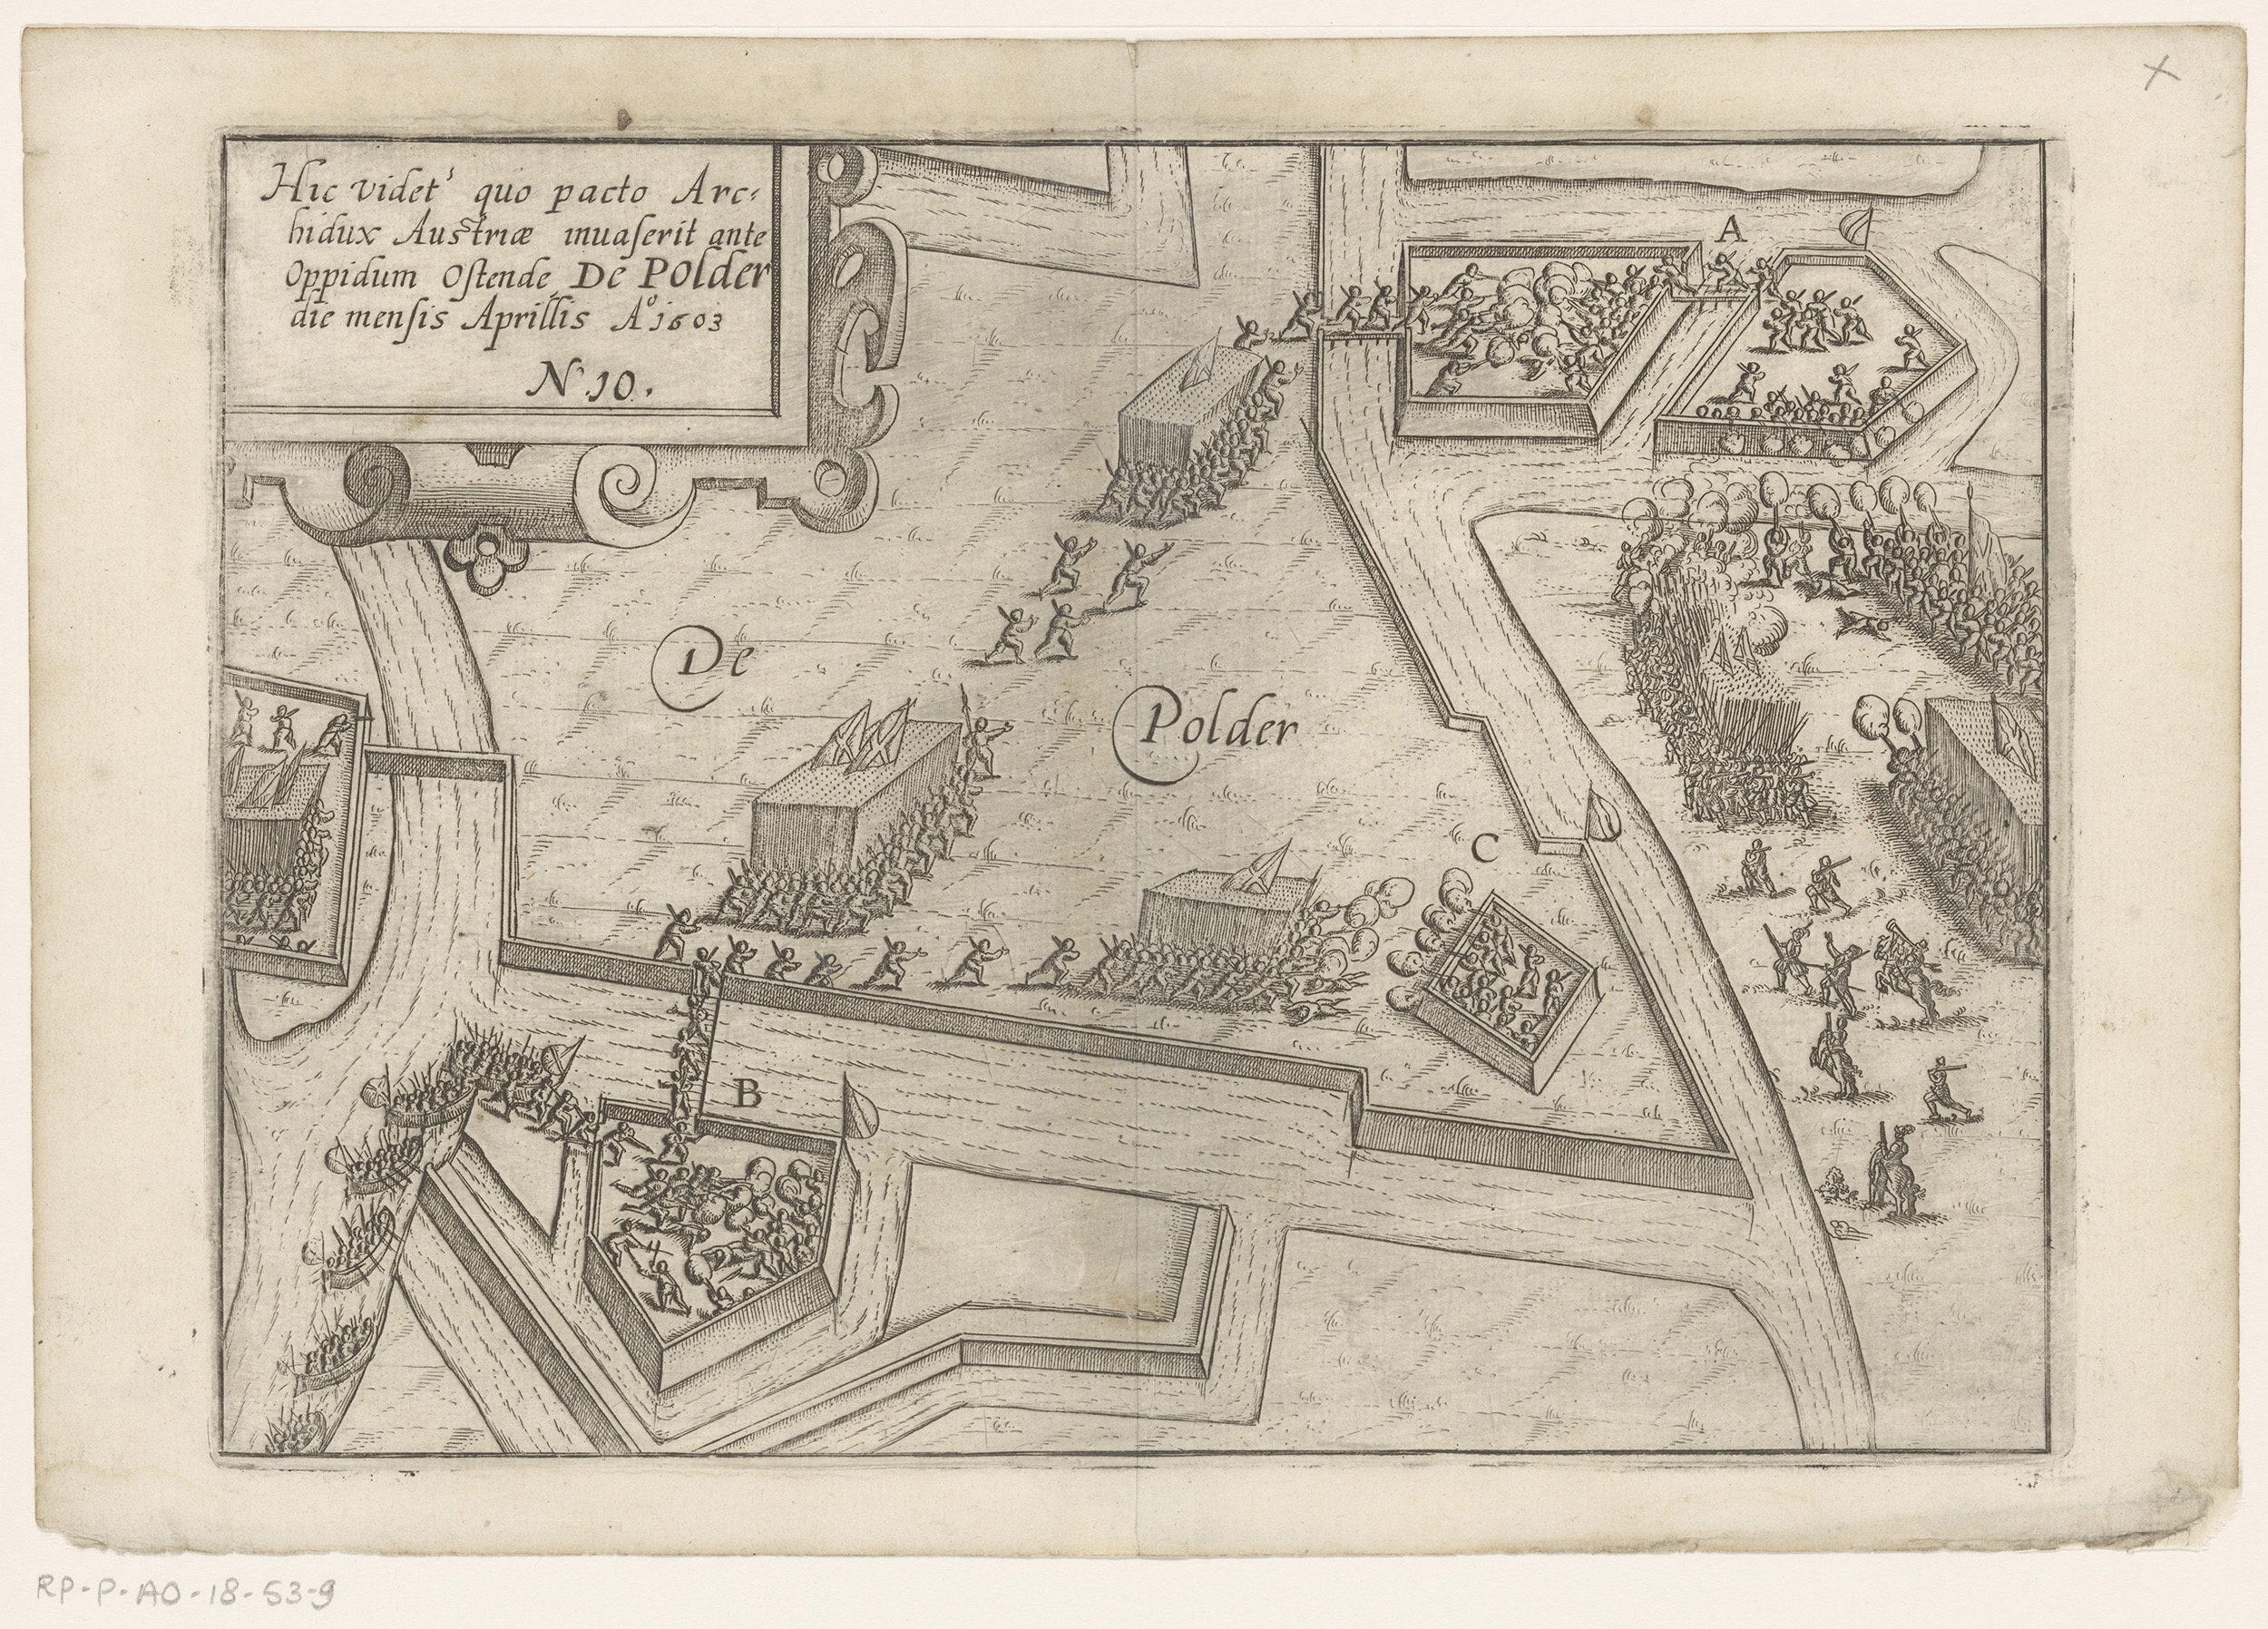 Hic videtˀ quo pacto Arc⸗
hidux Austriæ inuaſerit ante
Oppidum Oſtende De Polder
die menſis Aprillis Aº 1603
N. 10.
A
De
Polder
C
B
RP-P-AO-18-53-9